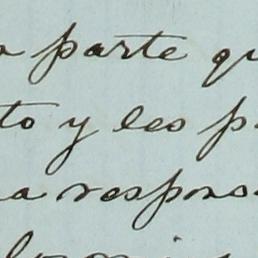 a parte qu
to y leo p
a respons